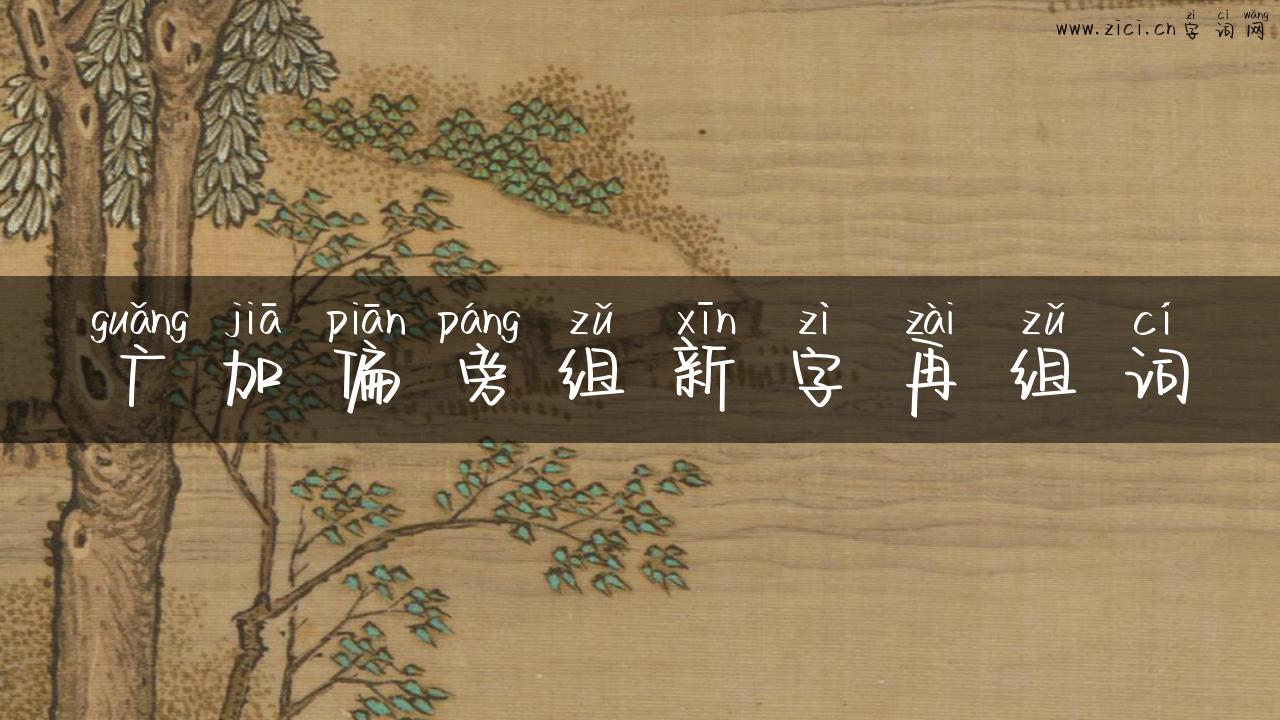 zì cí wǎng
www.zici.cn 字词网
guǎng jiā piān páng zǔ xīn zì zài zǔ cí
广加偏旁组新字再组词